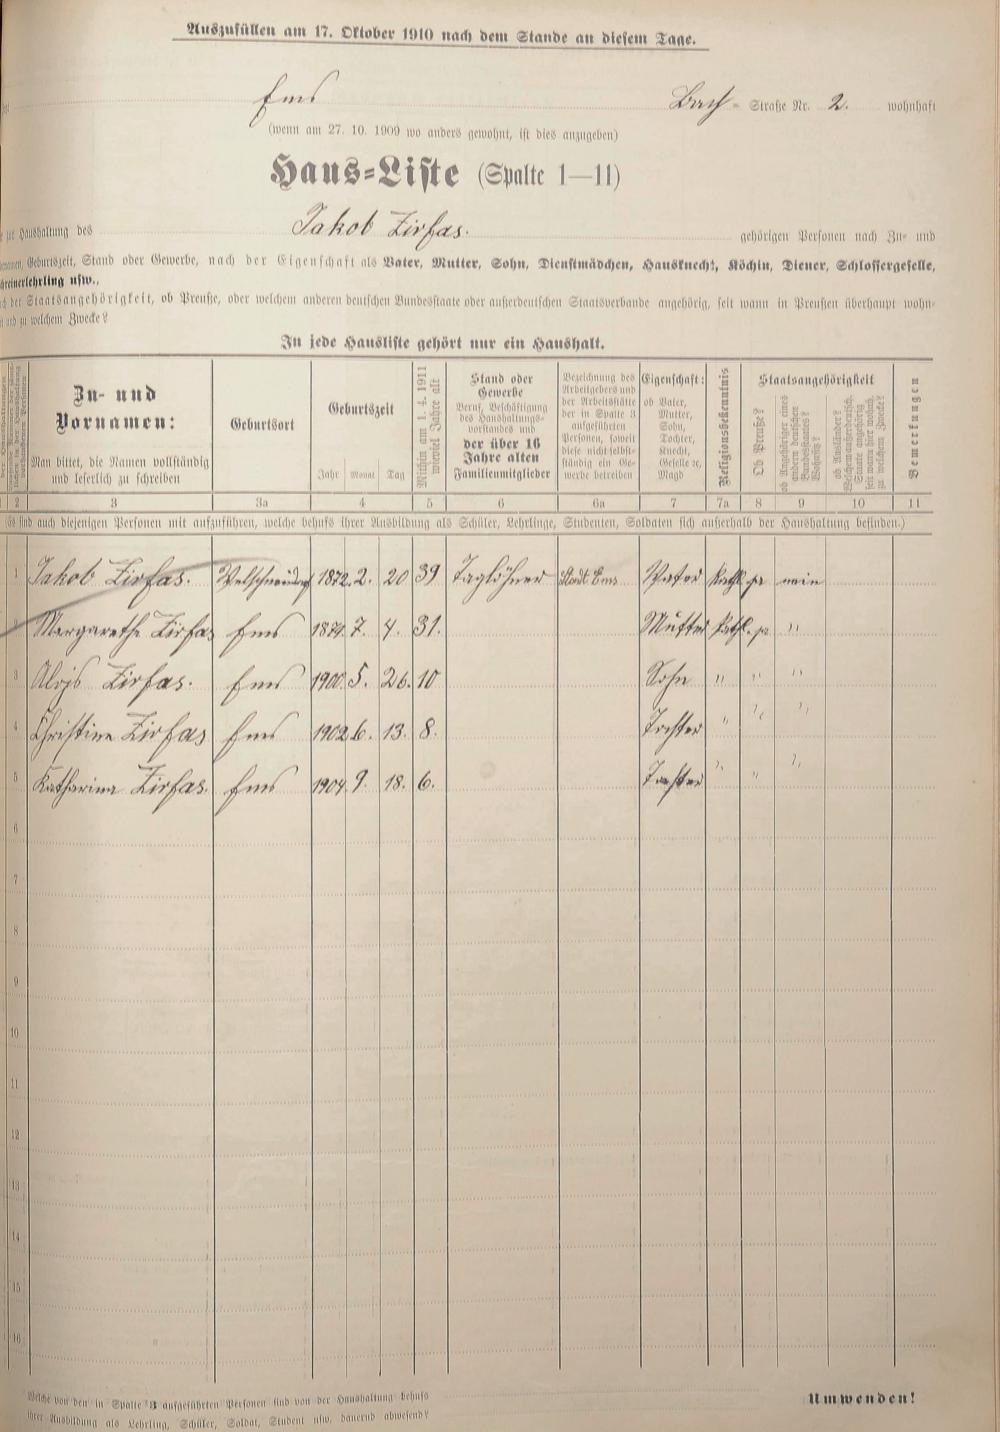 Auszufüllen am 17. Oktober 1910 nach dem Stande an diesem Tage.
Ems Bach- Straße Nr. 2. wohnhaft
(wenn am 27. 10. 1909 wo anders gewohnt, ist dies anzugeben)
Haus-Liste (Spalte 1—11)
zur Haushaltung des Jakob Zirfas. gehörigen Personen nach Zu- und
Geburtszeit, Stand oder Gewerbe, nach der Eigenschaft als Vater, Mutter, Sohn, Dienstmädchen, Hausknecht, Köchin, Diener, Schlossergeselle,
Schreinerlehrling usw.,
der Staatsangehörigkeit, ob Preuße, oder welchem anderen deutschen Bundesstaate oder außerdeutschen Staatsverbande angehörig, seit wann in Preußen überhaupt wohn-
und zu welchem Zwecke?
In jede Hausliste gehört nur ein Haushalt.
Zu- und
Vornamen:
Man bittet, die Namen vollständig
und leserlich zu schreiben
Geburtsort
Geburtszeit
Jahr Monat Tag
Mithin am 1. 4. 1911
wieviel Jahre alt
Stand oder
Gewerbe
Beruf, Beschäftigung
des Haushaltungs-
vorstandes und
der über 16
Jahre alten
Familienmitglieder
Bezeichnung des
Arbeitgebers und
der Arbeitsstätte
der in Spalte 3
aufgeführten
Personen, soweit
diese nicht selbst-
ständig ein Ge-
werbe betreiben
Eigenschaft:
ob Vater,
Mutter,
Sohn,
Tochter,
Knecht,
Geselle ec,
Magd
Religionsbekenntnis
Staatsangehörigkeit
Ob Preuße?
ob Angehöriger eines
andern deutschen
Bundesstaates?
Wohnsitz?
ob Ausländer?
Welchem außerdeutsch.
Staate angehörig
seit wann hier wohnh.
zu welchem Zwecke?
Bemerkungen
2 3 3a 4 5 6 6a 7 7a 8 9 10 11
(Es sind auch diejenigen Personen mit aufzuführen, welche behufs ihrer Ausbildung als Schüler, Lehrlinge, Studenten, Soldaten sich außerhalb der Haushaltung befinden.)
1 Jakob Zirfas. Welschneudorf 1872. 2. 20 39 Taglöhner Stadt Ems Vater Kath. ja nein
2 Margarethe Zirfas Ems 7. 4. 31. Mutter Kath. ja "
3 Alojs Zirfas. Ems 1900. 5. 26. 10 Sohn " " "
4 Christine Zirfas Ems 1902 6. 13. 8. Tochter " " "
5 Katharina Zirfas. Ems 1904 9. 18. 6. Tochter " " "
6
7
8
9
10
11
12
13
14
15
16
Welche von den in Spalte 3 aufgeführten Personen sind von der Haushaltung behufs
ihrer Ausbildung als Lehrling, Schüler, Soldat, Student usw. dauernd abwesend?
Umwenden!